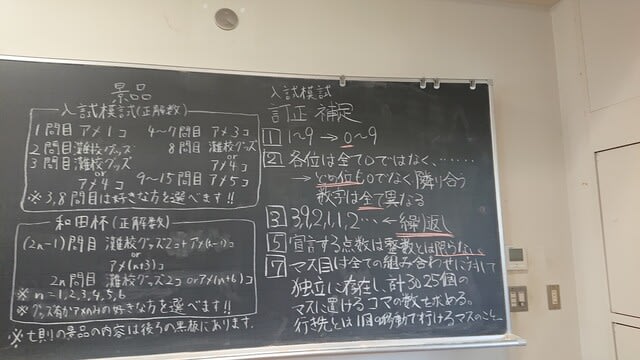 景品
入試模試(正解数)
1問目 アメ1コ 4〜7問目 アメ3コ
2問目 灘校グッズ 8問目 灘校グッズ
3問目 灘校グッズ or
or アメ4コ
アメ4コ 9〜15問目 アメ5コ
※3,8問目は好きな方を選べます!!
和田杯(正解数)
(2n-1)問目 灘校グッズ2コ+アメ(n-1)コ
or
アメ(n+3)コ
2n問目 灘校グッズ2コ orアメ(n+6)コ
※ n=1,2,3,4,5,6
※グッズ有かアメのみの好きな方を選べます!!
※七則の景品の内容は後ろの黒板にあります。
入試模試
訂正 補足
1 1〜9 → 0〜9
2 各位は全て0ではなく、……
→ どの位も0でなく隣り合う
数字は全て異なる
3 3,9,2,1,1,2… ← 繰り返し
5 宣言する点数は整数とは限らない
7 マス目は全ての組み合わせに対して
独立に存在し、計3025個の
マスに置けるコマの数を求める。
行先とは1回の移動で行けるマスのこと